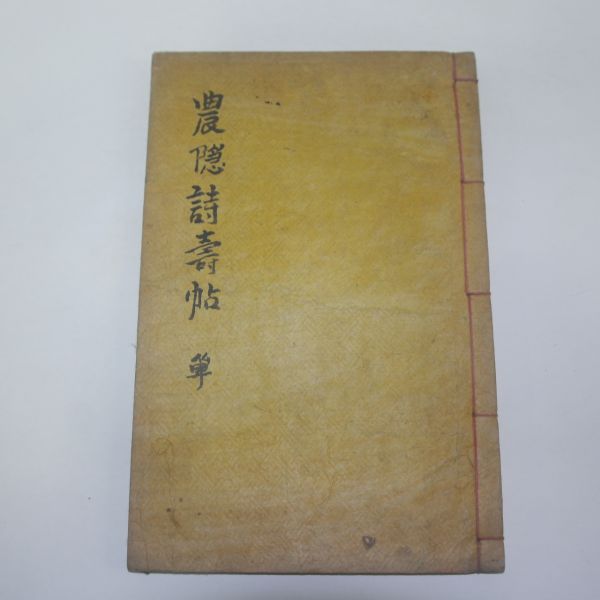 農隱詩壽帖 單